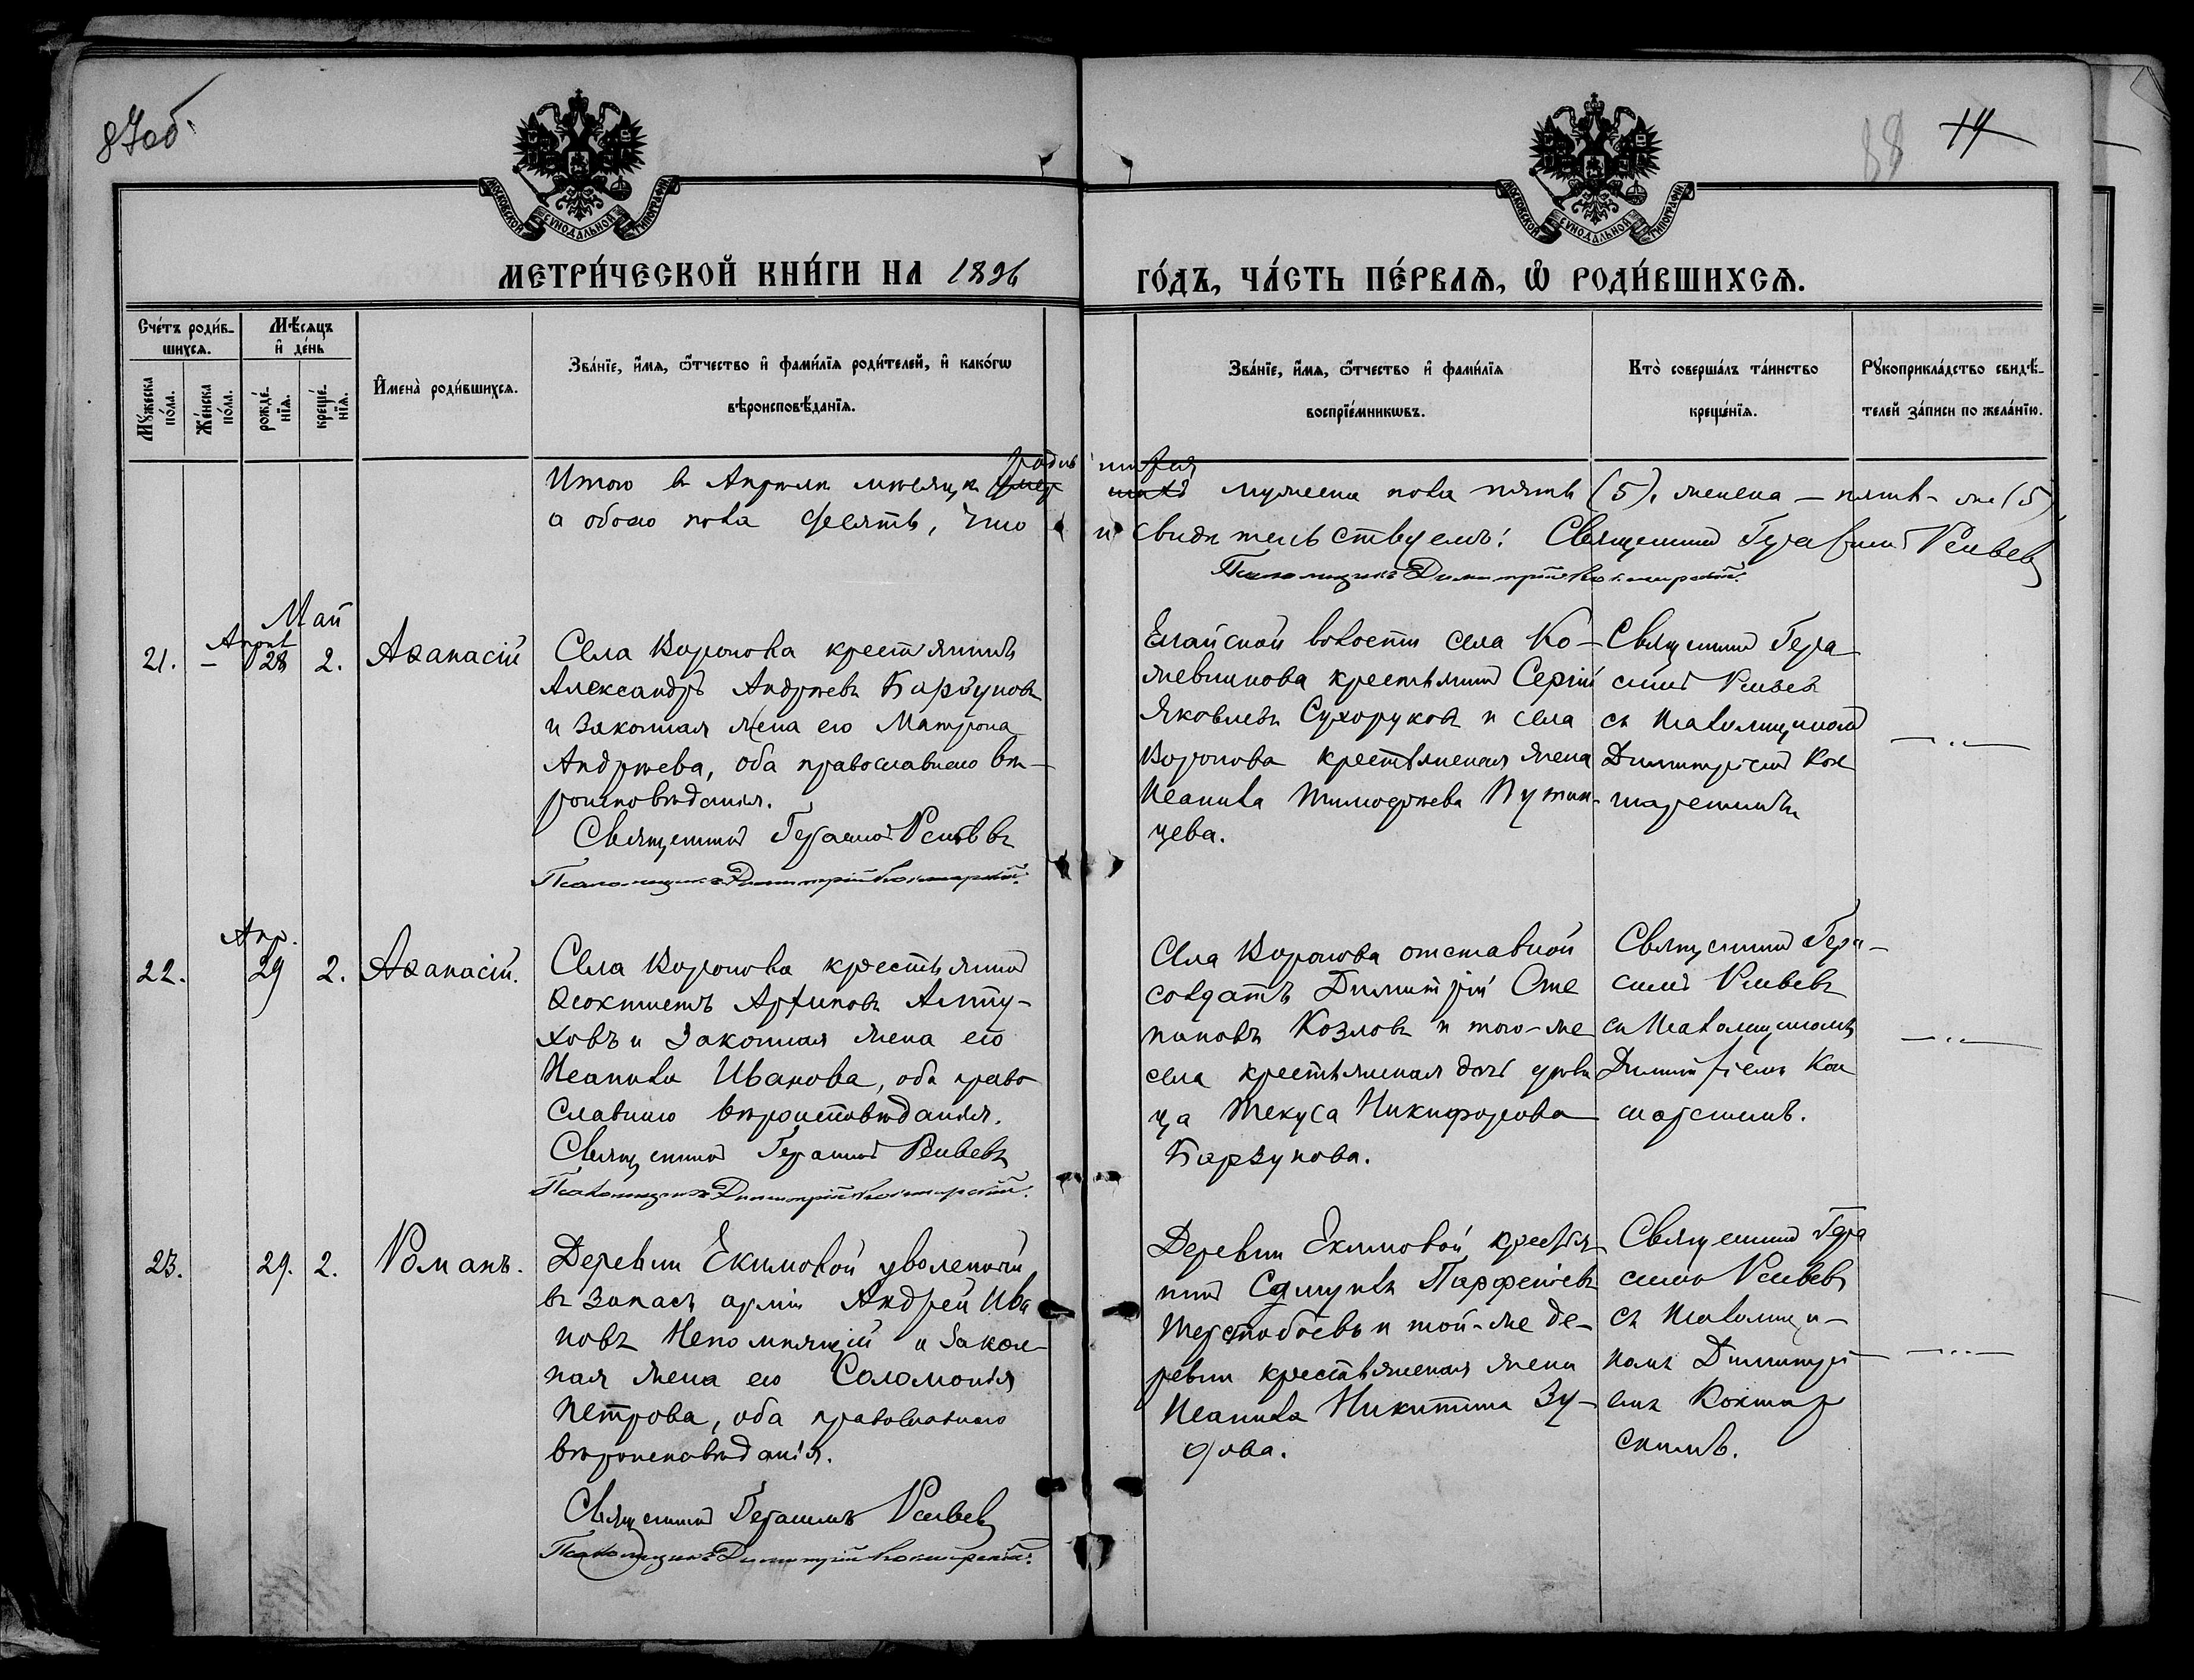 87об.
88 14
МОСКОВСКОЙ СѴНОДАЛЬНОЙ ТИПОГРАФІИ
МОСКОВСКОЙ СѴНОДАЛЬНОЙ ТИПОГРАФІИ
МЕТРИ́ЧЕСКОЙ КНИ́ГИ НА 1896 ГО́ДЪ, ЧА́СТЬ ПЕ́РВАѦ, Ѡ҆ РОДИ́ВШИХСѦ.
Сче́тъ роди́в-
шихсѧ.
Мѣ́сѧцъ
и҆ де́нь
Мꙋ́жеска
по́ла.
Же́нска
по́ла.
рожде́-
нїѧ.
креще́-
нїѧ.
И҆мена̀ роди́вшихсѧ.
Зва́нїе, и҆́мѧ, ѻ҆́тчество и҆ фами́лїѧ роди́телей, и҆ како́гѡ
вѣроисповѣ́данїѧ.
Зва́нїе, и҆́мѧ, ѻ҆́тчество и҆ фами́лїѧ
воспрїе́мникѡвъ.
Кто̀ соверша́лъ та́инство
креще́нїѧ.
Рꙋкоприкла́дство свидѣ́-
телей за́писи по жела́нїю.
Итого въ Апрѣлѣ мѣсяцѣ родившихся мужеска пола пять (5), женска – пять-же (5)
а обоего пола десять, что и свидѣтельствуемъ: Священникъ Герасимъ
Псаломщикъ Димитрій
Май
Апрѣл
21. – 28 2. Аѳанасій
Села Воронова крестьянинъ
Александръ Андреевъ Барзуновъ
и законная жена его Матрона
Андреева, оба православнаго вѣ-
роисповѣданія.
Священникъ Герасимъ
Псаломщикъ Димитрій
волости села Ко-
жевникова крестьянинъ Сергій
Яковлевъ Сухоруковъ и села
Воронова крестьянская жена
Неанила Тимофеева Путин-
цева.
Священникъ Гера-
симъ
съ Псаломщикомъ
Димитріемъ
Апр.
22. 29 2. Аѳанасій.
Села Воронова крестьянинъ
Ѳеоктистъ Архиповъ Алту-
ховъ и законная жена его
Неанила Иванова, оба право
славнаго вѣроисповѣданія.
Священникъ Герасимъ
Псаломщикъ Димитрій
Села Воронова отставной
солдатъ Димитрій Сте
пановъ Козловъ и того-же
села крестьянская дочь дѣви
ца Текуса Никифорова
Барзунова.
Священникъ Гера-
симъ
съ Псаломщикомъ
Димитріемъ
23. 29. 2. Романъ.
Деревни Екимовой уволенный
въ запасъ арміи Андрей Ива
новъ Непомнящій и закон-
ная жена его Соломонія
Петрова, оба православнаго
вѣроисповѣданія.
Священникъ Герасимъ
Псаломщикъ Димитрій
Деревни Екимовой крестья-
нинъ Парфеніевъ
и той-же де-
ревни крестьянская жена
Неанила Никитина Зу-
Священникъ Гера
симъ
съ Псаломщи-
комъ Димитрі